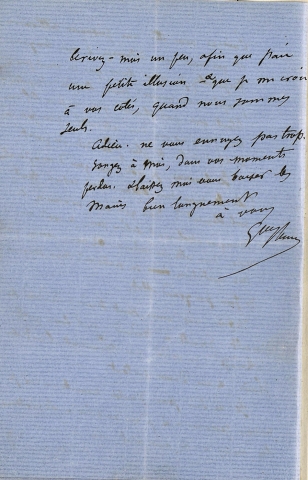 Écrivez-moi un peu, afin que j'aie
une petite illusion et que je me croie
à vos côtés, quand nous sommes
seuls.
Adieu. ne vous ennuyez pas trop.
Songez à moi, dans vos moments
perdus. et laissez moi vous baiser les
mains bien longuement
à vous